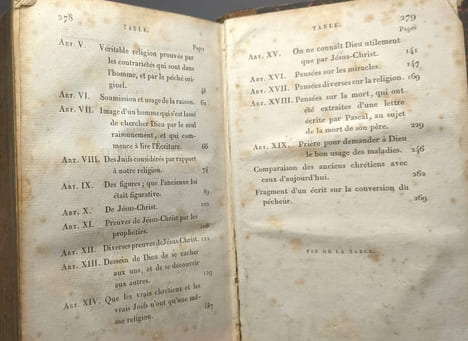 278
TABLE.
Pages
ART. V. Véritable religion prouvée par
les contrariétés qui sont dans
l'homme, et par le péché ori-
ginel. 48
ART. VI. Soumission et usage de la raison. 62
ART. VII. Image d'un homme qui s'est lassé
de chercher Dieu par le seul
raisonnement, et qui com-
mence à lire l'Écriture. 66
ART. VIII. Des Juifs considérés par rapport
à notre religion.
ART. IX. Des figures; que l'ancienne loi
était figurative. 89
ART. X. De Jésus-Christ.
ART. XI. Preuves de Jésus-Christ par les
prophéties.
ART. XII. Diverses preuves de Jésus-Christ.
ART. XIII. Dessein de Dieu de se cacher
aux uns, et de se découvrir
aux autres. 129
ART. XIV. Que les vrais chrétiens et les
vrais Juifs n'ont qu'une mê-
me religion.
TABLE.
279
Pages
ART. XV. On ne connaît Dieu utilement
que par Jésus-Christ. 141
ART. XVI. Pensées sur les miracles. 147
ART. XVII. Pensées diverses sur la religion. 169
ART. XVIII. Pensées sur la mort, qui ont
été extraites d'une lettre
écrite par Pascal, au sujet
de la mort de son père. 229
ART. XIX. Prière pour demander à Dieu
le bon usage des maladies. 246
Comparaison des anciens chrétiens avec
ceux d'aujourd'hui. 262
Fragment d'un écrit sur la conversion du
pécheur. 269
FIN DE LA TABLE.